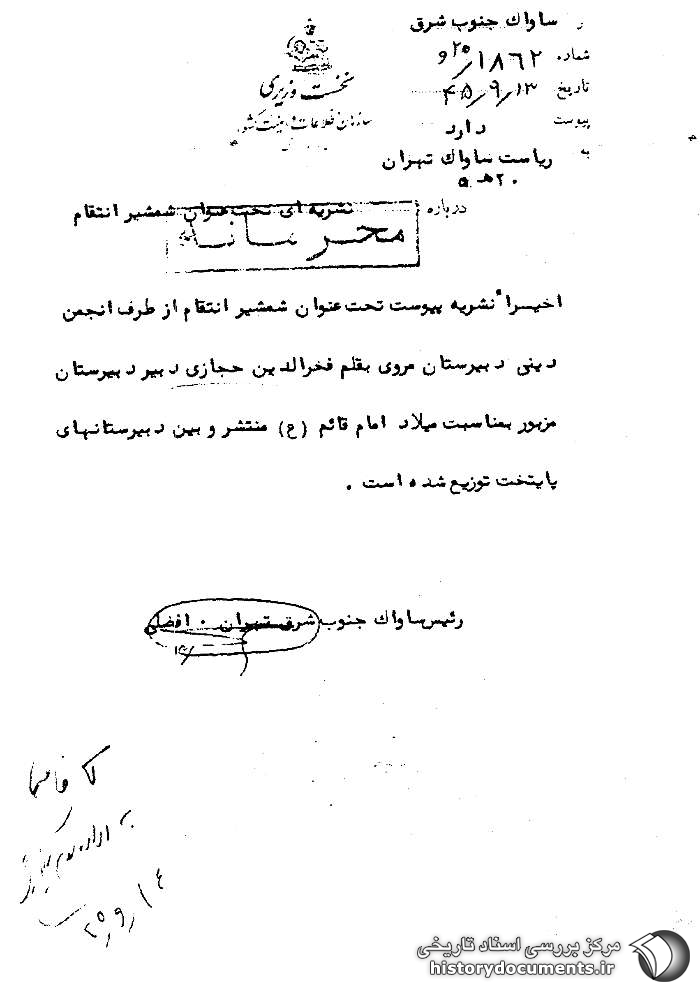 ساواک جنوب شرق
شماره ۱۸۶۲/
تاریخ ۴۵/۹/۱۳
پیوست دارد
به ریاست ساواک تهران
۲۰ هـ ۵
نخست وزیری
سازمان اطلاعات و امنیت کشور
درباره نشریه ای تحت عنوان شمشیر انتقام
محرمانه
اخیراً نشریه پیوست تحت عنوان شمشیر انتقام از طرف انجمن
دینی دبیرستان مروی بقلم فخرالدین حجازی دبیر دبیرستان
مزبور بمناسبت میلاد امام قائم (ع) منتشر و بین دبیرستانهای
پایتخت توزیع شده است .
رئیس ساواک جنوب شرق تهران . افضلی
به اداره
مرکز بررسی اسناد تاریخی
historydocuments.ir